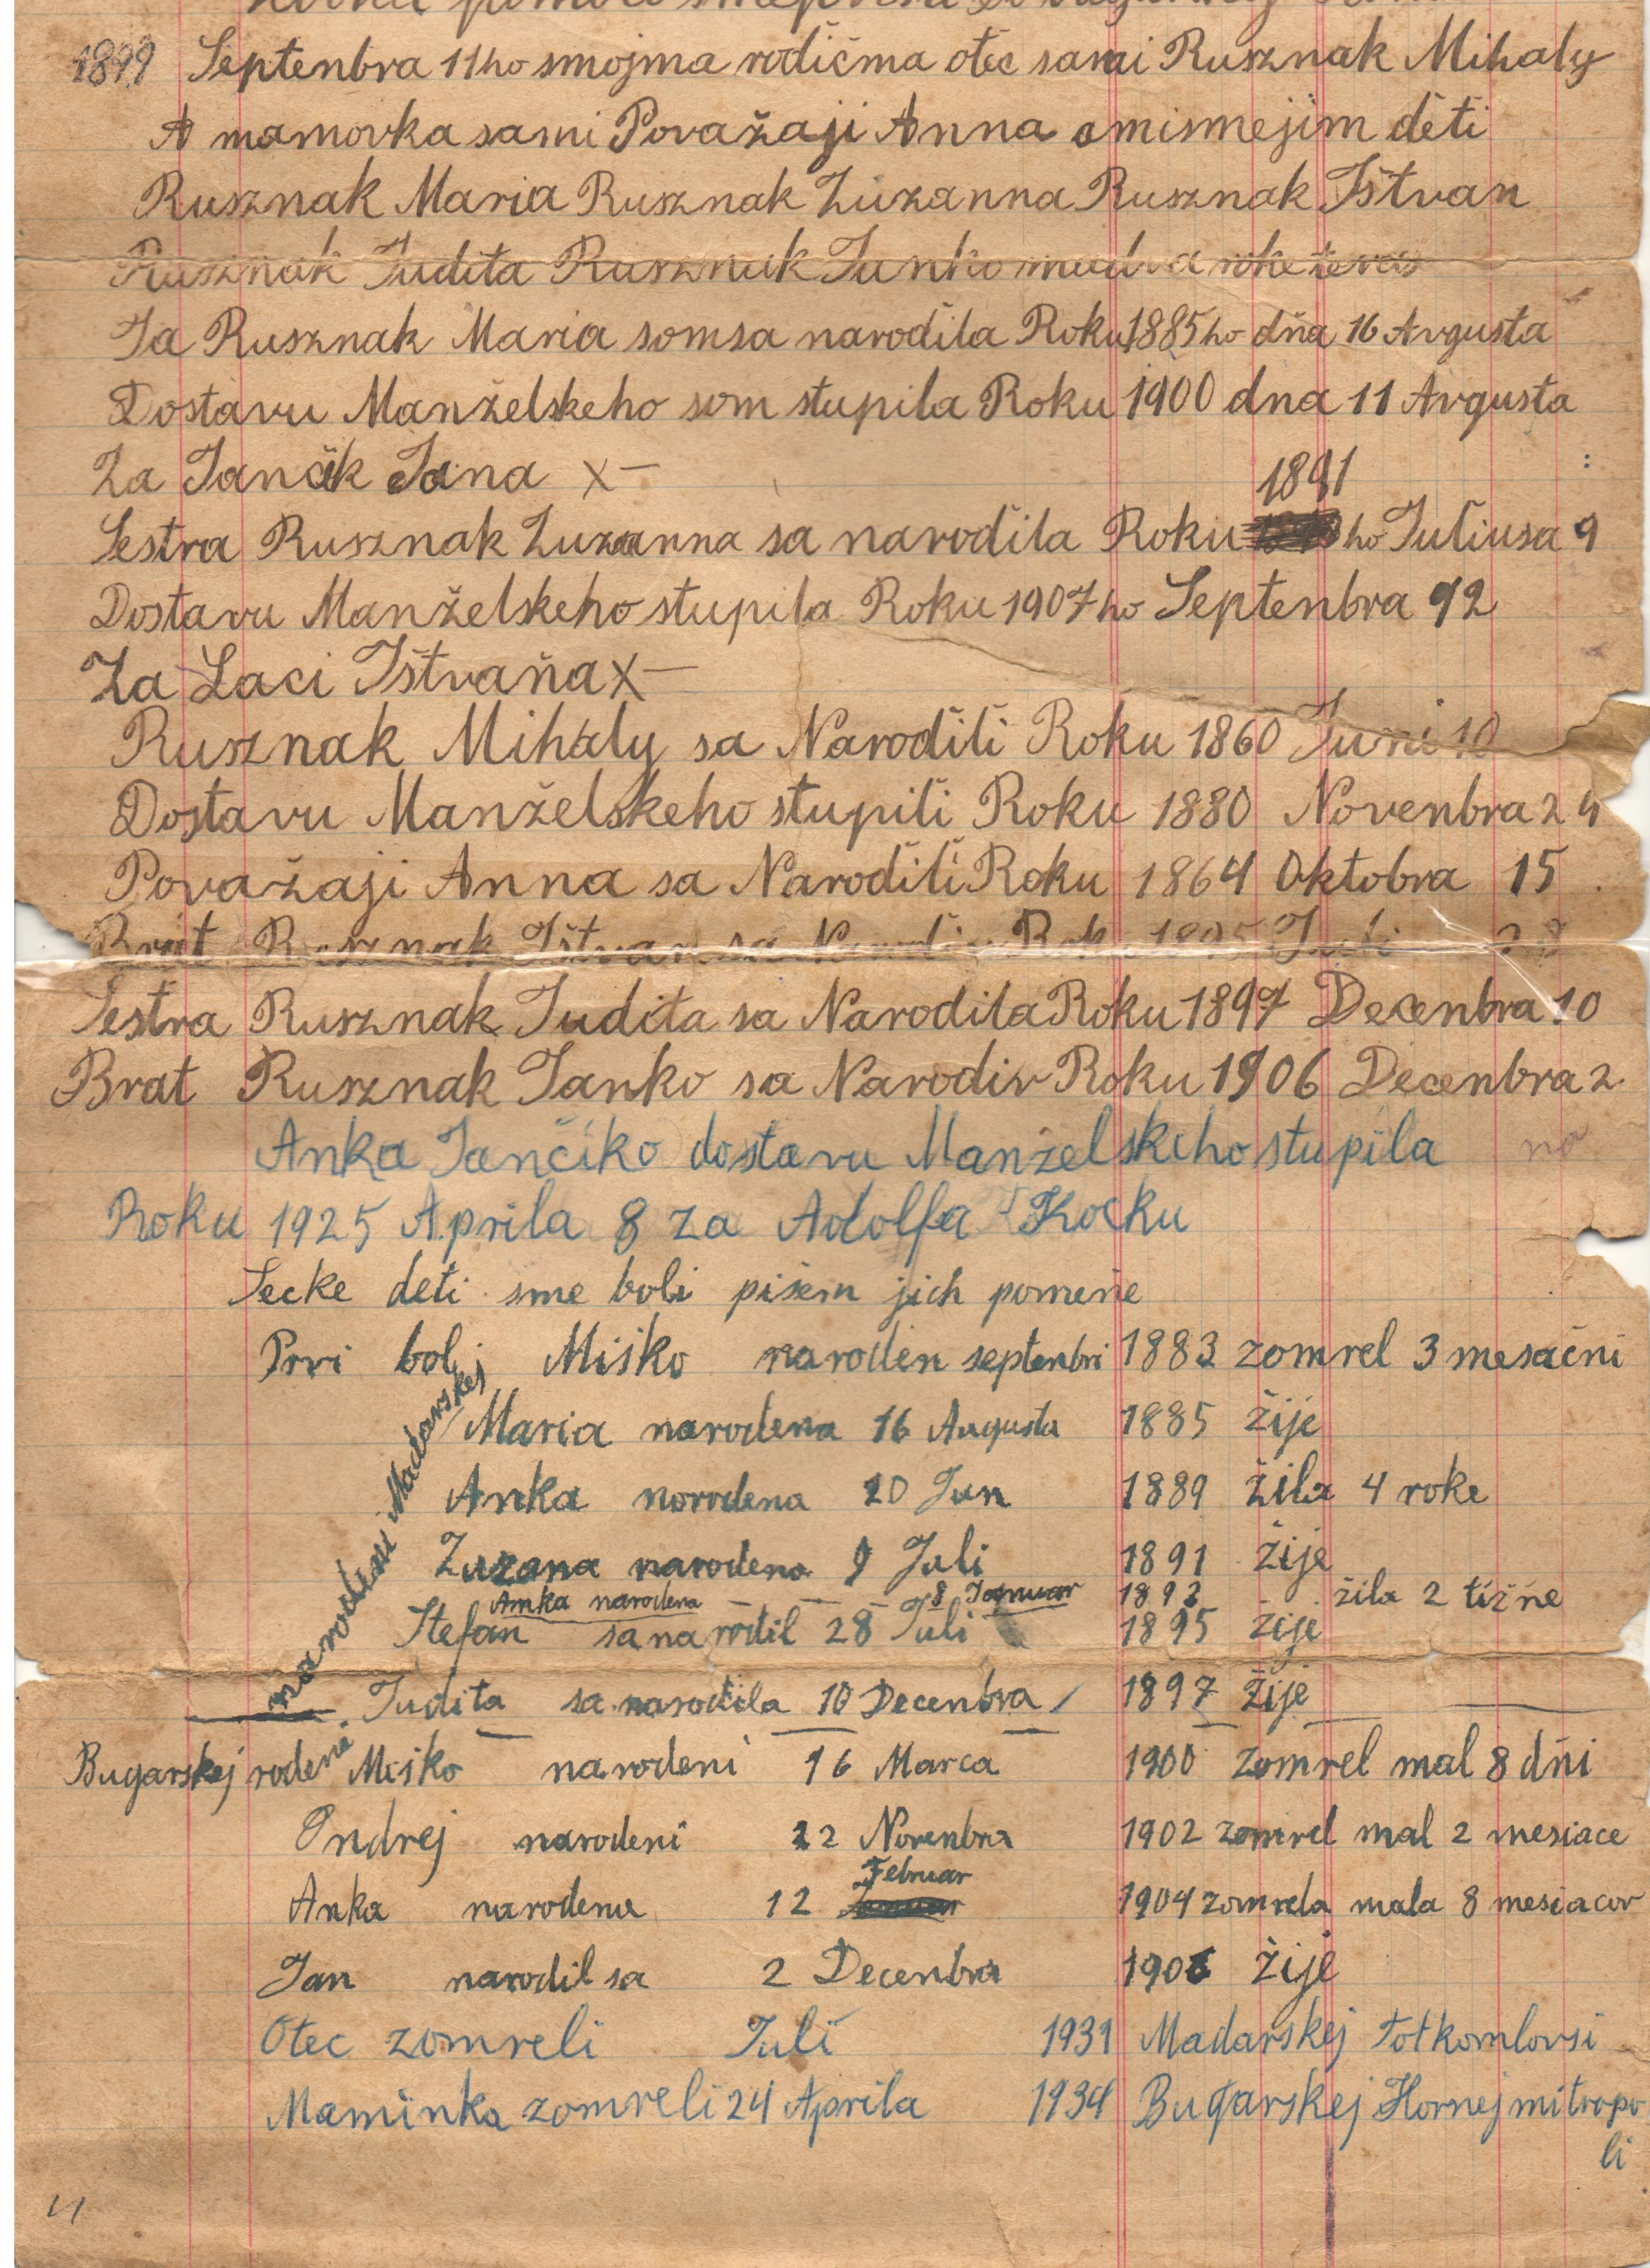 1899 Septenbra 11ho smojma rodičma otec sami Rusznak Mihaly
A mamovka sami Považaji Anna amismejim děti
Rusznak Maria Rusznak Zuzanna Rusznak Ištvan
Rusznak Judita Rusznak Janko
Ja Rusznak Maria somsa narodila Roku 1885ho dňa 16 Avgusta
Dostavu Manželskeho som stupila Roku 1900 dna 11 Avgusta
Za Jančik Jana x—
1891
Sestra Rusznak Zuzanna sa narodila Roku ho Juliusa 9
Dostavu Manželskeho stupila Roku 1907ho Septenbra 12
Za Laci Ištvaňa x—
Rusznak Mihaly sa Narodili Roku 1860 Juni 10
Dostavu Manželskeho stupili Roku 1880 Novenbra 24
Považaji Anna sa Narodili Roku 1864 Oktobra 15
Brat Rusznak Ištvan sa Roku 1895 Juli
Sestra Rusznak Judita sa Narodila Roku 1897 Decenbra 10
Brat Rusznak Janko sa Narodiv Roku 1906 Decenbra 2
Anka Jančiko dostavu Manželskeho stupila na
Roku 1925 Aprila 8 za Adolfa Kocku
Secke deti sme boli pišem jich pomeňe
Prvi bol Miško naroden septenbri 1883 zomrel 3 mesačni
Maria narodena 16 Augusta 1885 žije
Anka norodena 20 Jun 1889 žila 4 roke
Zuzana narodena 9 Juli 1891 žije
Anka narodena — — 8 Januar 1893 - . žila 2 tižňe
Stefan sa narodil 28 Juli 1895 žije
narodeni Madarskej
Judita sa narodila 10 Decenbra 1897 žije
Bugarskej rodeni Miško narodeni 16 Marca 1900 zomrel mal 8 dňi
Ondrej narodeni 22 Novenbra 1902 zomrel mal 2 mesiace
Februar
Anka narodena 12 1904 zomrela mala 8 mesiacov
Jan narodil sa 2 Decenbra 1906 žije
Otec zomreli Juli 1931 Madarskej Totkomlovsi
Maminka zomreli 24 Aprila 1934 Bugarskej Hornej mitropo
li